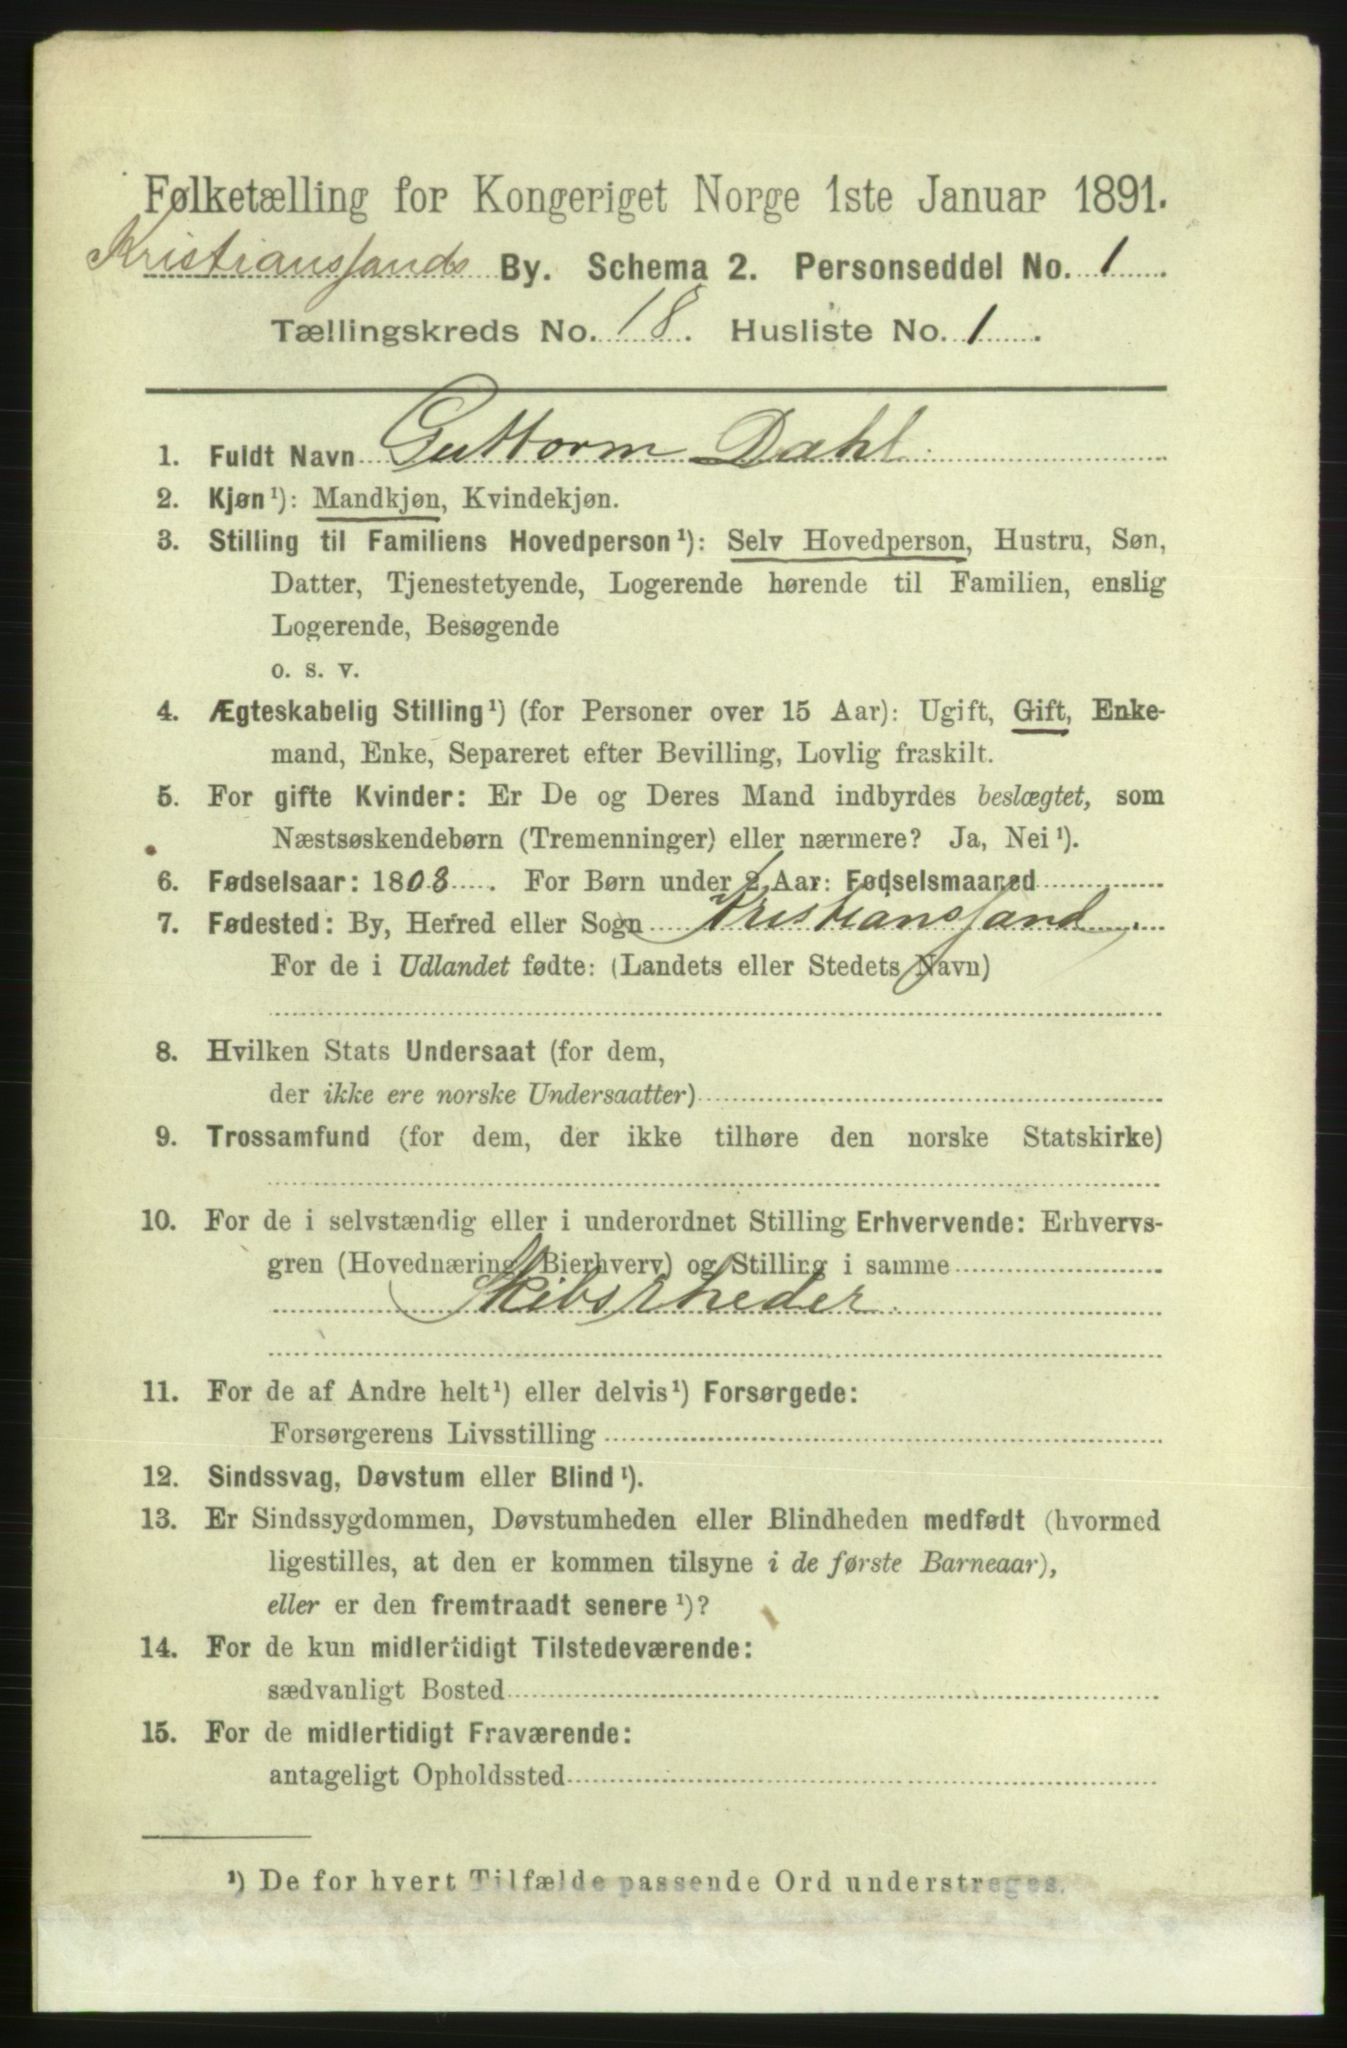 Følketælling for Kongeriget Norge 1ste Januar 1891.
Kristianssands By. Schema 2. Personseddel No. 1
Tællingskreds No. 18. Husliste No. 1.
1. Fuldt Navn Guttorm Dahl.
2. Kjøn¹): Mandkjøn, Kvindekjøn.
3. Stilling til Familiens Hovedperson¹): Selv Hovedperson, Hustru, Søn,
Datter, Tjenestetyende, Logerende hørende til Familien, enslig
Logerende, Besøgende
o. s. v.
4. Ægteskabelig Stilling¹) (for Personer over 15 Aar): Ugift, Gift, Enke-
mand, Enke, Separeret efter Bevilling, Lovlig fraskilt.
5. For gifte Kvinder: Er De og Deres Mand indbyrdes beslægtet, som
Næstsøskendebørn (Tremenninger) eller nærmere? Ja, Nei¹).
6. Fødselsaar: 1808. For Børn under 2 Aar: Fødselsmaaned
7. Fødested: By, Herred eller Sogn Kristianssand.
For de i Udlandet fødte: (Landets eller Stedets Navn)
8. Hvilken Stats Undersaat (for dem,
der ikke ere norske Undersaatter)
9. Trossamfund (for dem, der ikke tilhøre den norske Statskirke)
10. For de i selvstændig eller i underordnet Stilling Erhvervende: Erhvervs-
gren (Hovednæring, Bierhverv) og Stilling i samme
Skibsrheder.
11. For de af Andre helt¹) eller delvis¹) Forsørgede:
Forsørgerens Livsstilling
12. Sindssvag, Døvstum eller Blind¹).
13. Er Sindssygdommen, Døvstumheden eller Blindheden medfødt (hvormed
ligestilles, at den er kommen tilsyne i de første Barneaar),
eller er den fremtraadt senere¹)?
14. For de kun midlertidigt Tilstedeværende:
sædvanligt Bosted
15. For de midlertidigt Fraværende:
antageligt Opholdssted
¹) De for hvert Tilfælde passende Ord understreges.